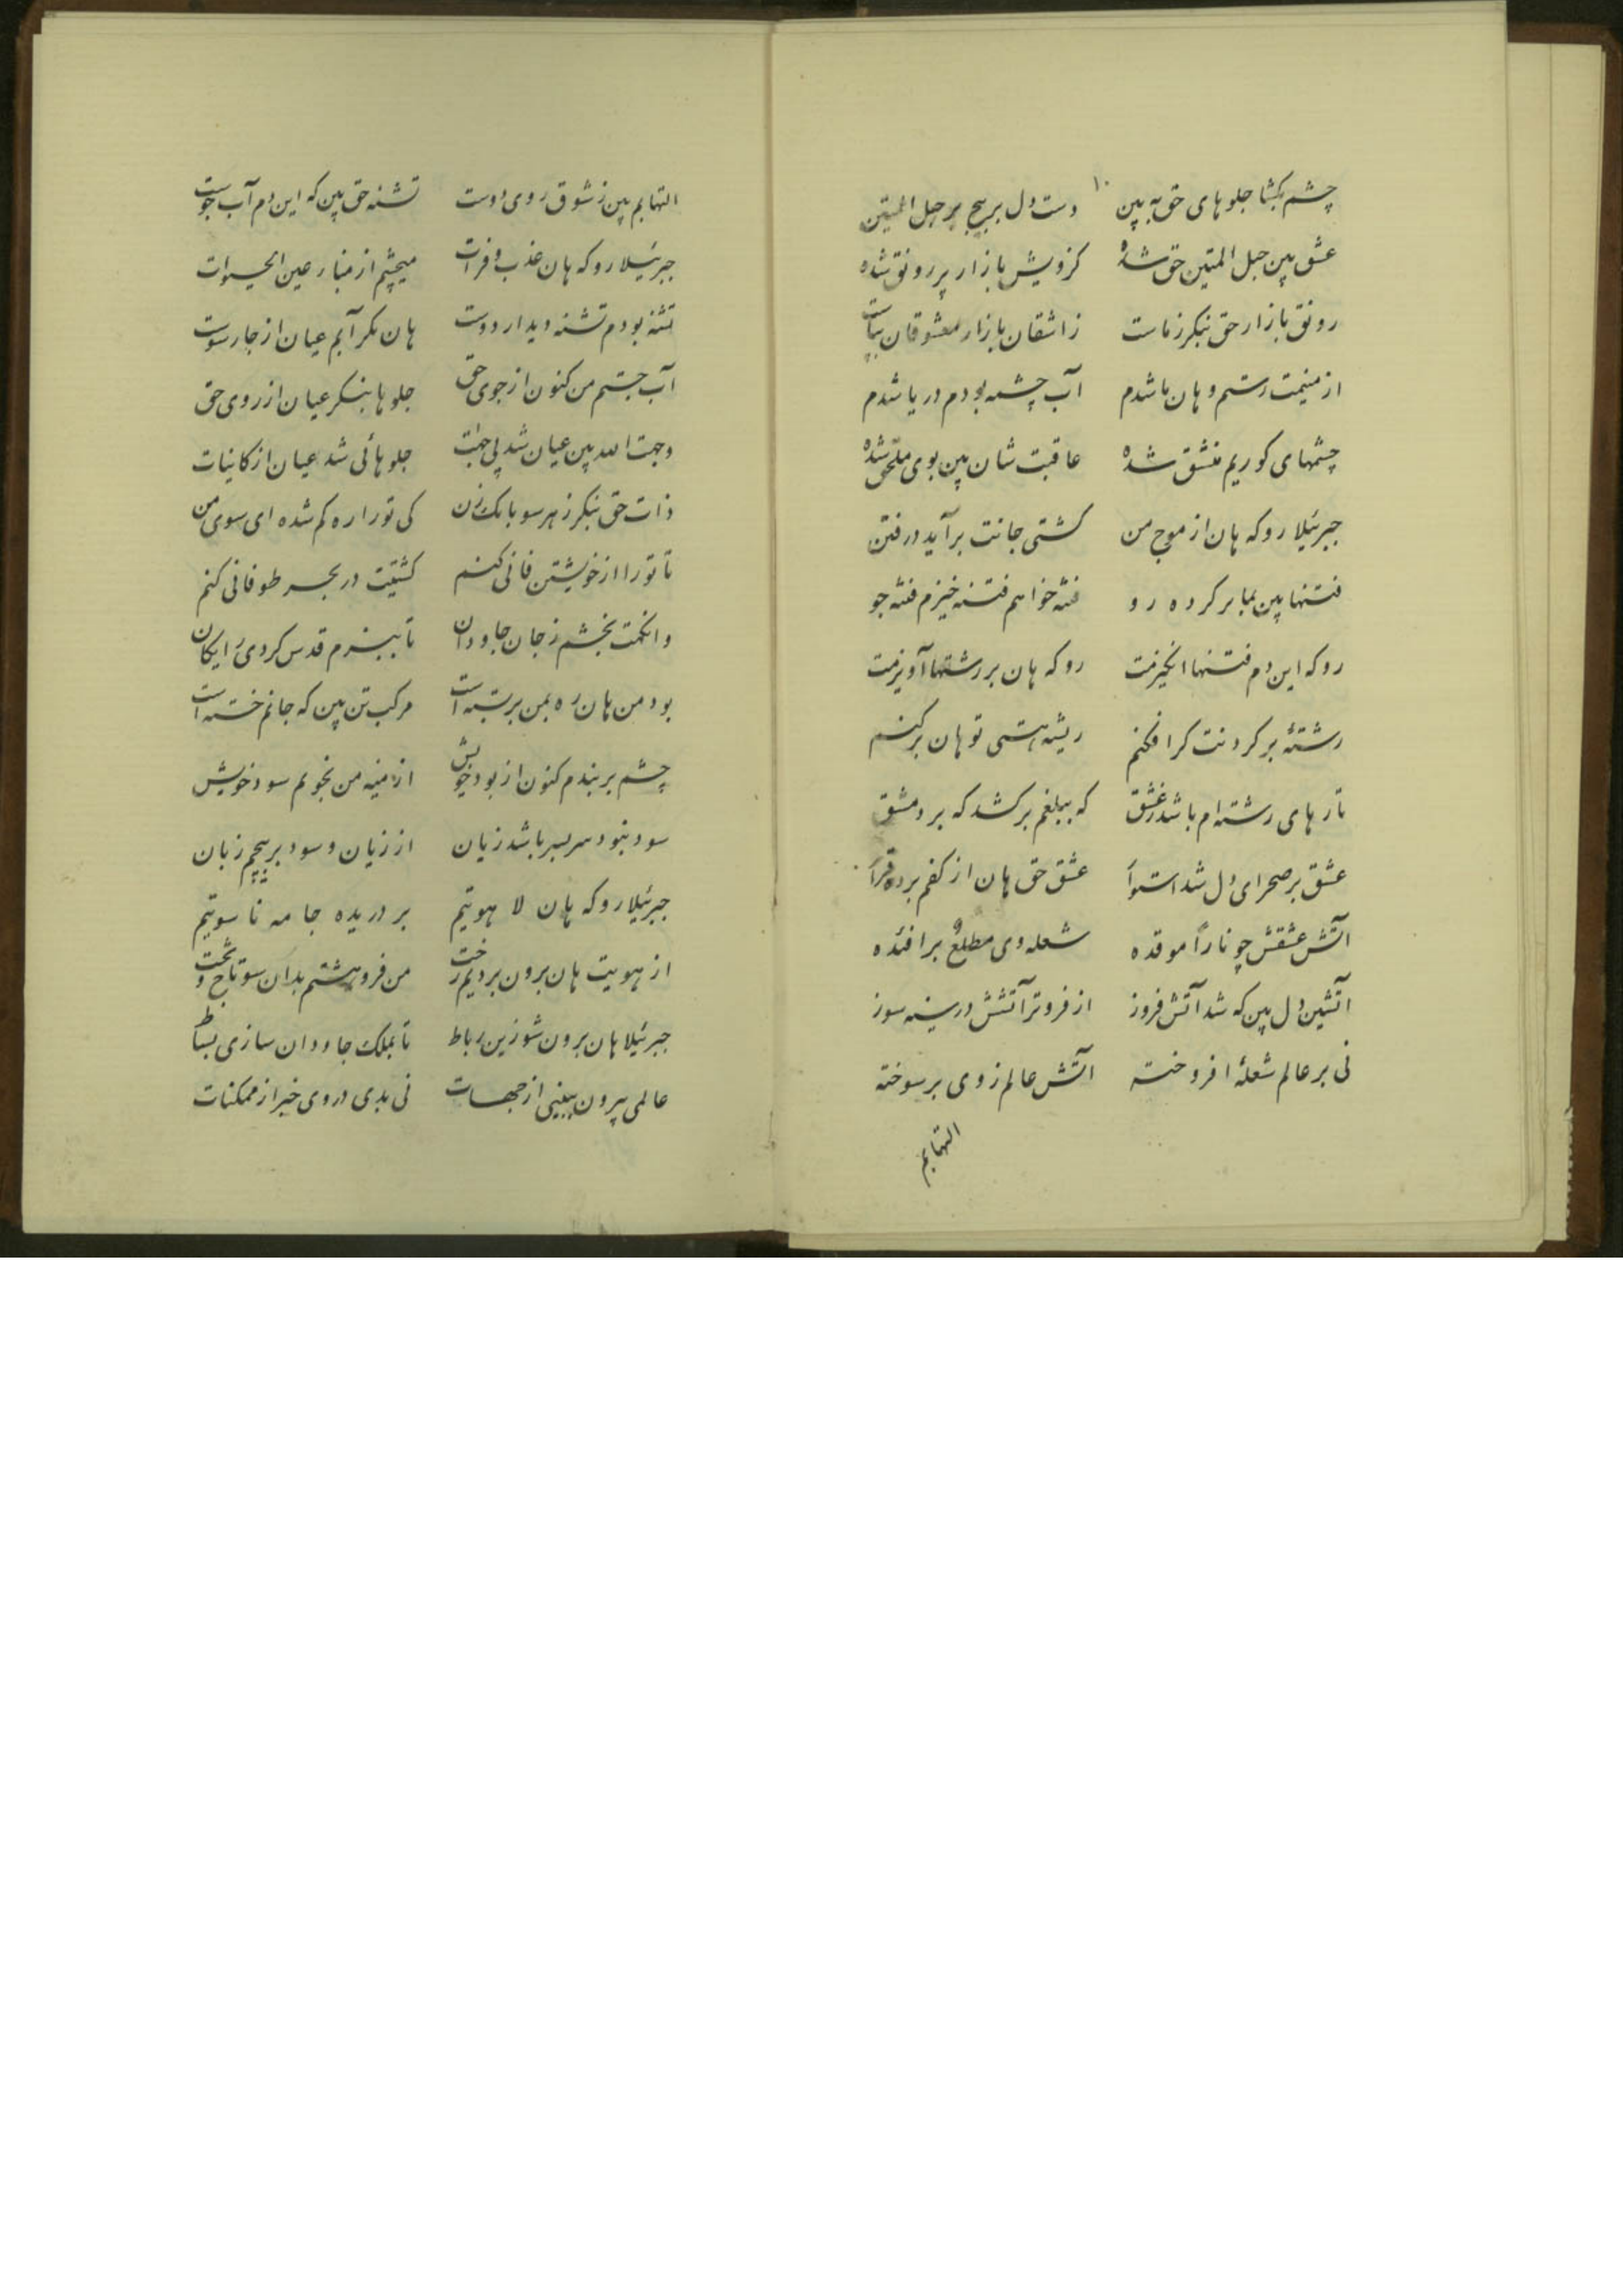 ۱۰
چشم بکشا جلوهای حق به بین دست دل بر پیچ بر حبل المتین
عشق بین حبل المتین حق شده کز ویش بازار پر رونق شده
رونق بازار حق بنکر ز ماست ز اشقان بازار معشوقان بپاست
از منیمت رستم و هان ما شدم آب چشمه بودم دریا شدم
چشمهای کوریم منشق شده عاقبت شان بین بوی ملحق شده
جبرئیلا رو که هان از موج من کشتی جانت برآید در فتن
فتنها بین بما بر کرده رو فتنه خواهم فتنه خیزم فتنه جو
رو که این دم فتنها انکیزمت رو که هان بر رشتها آویزمت
رشتهٔ بر کردنت کر افکنم ریشه هستی تو هان بر کنم
تارهای رشته ام باشد ز عشق که ببلغم بر کشد که بر دمشق
عشق بر صحرای دل شد استوا عشق حق هان از کفم برده قرا
اتش عشقش چو ناراً موقده شعله وی مطلعٌ بر افئده
اتشین دل بین که شد آتش فروز از فروتر آتشش در سینه سوز
نی بر عالم شعلهٔ افروخته اتش عالم ز وی بر سوخته
التهابم
التهابم بین ز شوق روی دوست تشنه حق بین که این دم آب جوست
جبرئیلا رو که هان عذب و فرات میچشم از منبار عین الحیوات
تشنه بودم تشنه دیدار دوست هان نکر آبم عیان از چار سوست
آب جستم من کنون از جوی حق جلوها بنکر عیان از روی حق
وجهت الله بین عیان شد بی جهات جلوهائی شد عیان از کاینات
ذات حق بنکر ز هر سو بانک زن کی تو را ره کم شده ای سوی من
تا تو را از خویشتن فانی کنم کشتیت در بحر طوفانی کنم
وانکهت بخشم ز جان جاودان تا ببزم قدس کردی رایکان
بود من هان ره بمن بر بسته است مرکب تن بین که جانم خسته است
چشم بر بندم کنون از بود خویش از منیه من نجویم سود خویش
سود نبود سر بسر باشد زیان از زیان و سود بر پیچم زبان
جبرئیلا رو که هان لا هوتیم بر دریده جامه ناسوتیم
از هویت هان برون بردیم رخت من فرو هشتم بدان سو تاج و تخت
جبرئیلا هان برون شو زین رباط تا بملک جاودان سازی بساط
عالمی بیرون ببینی از جهات نی بدی در وی خبر از ممکنات